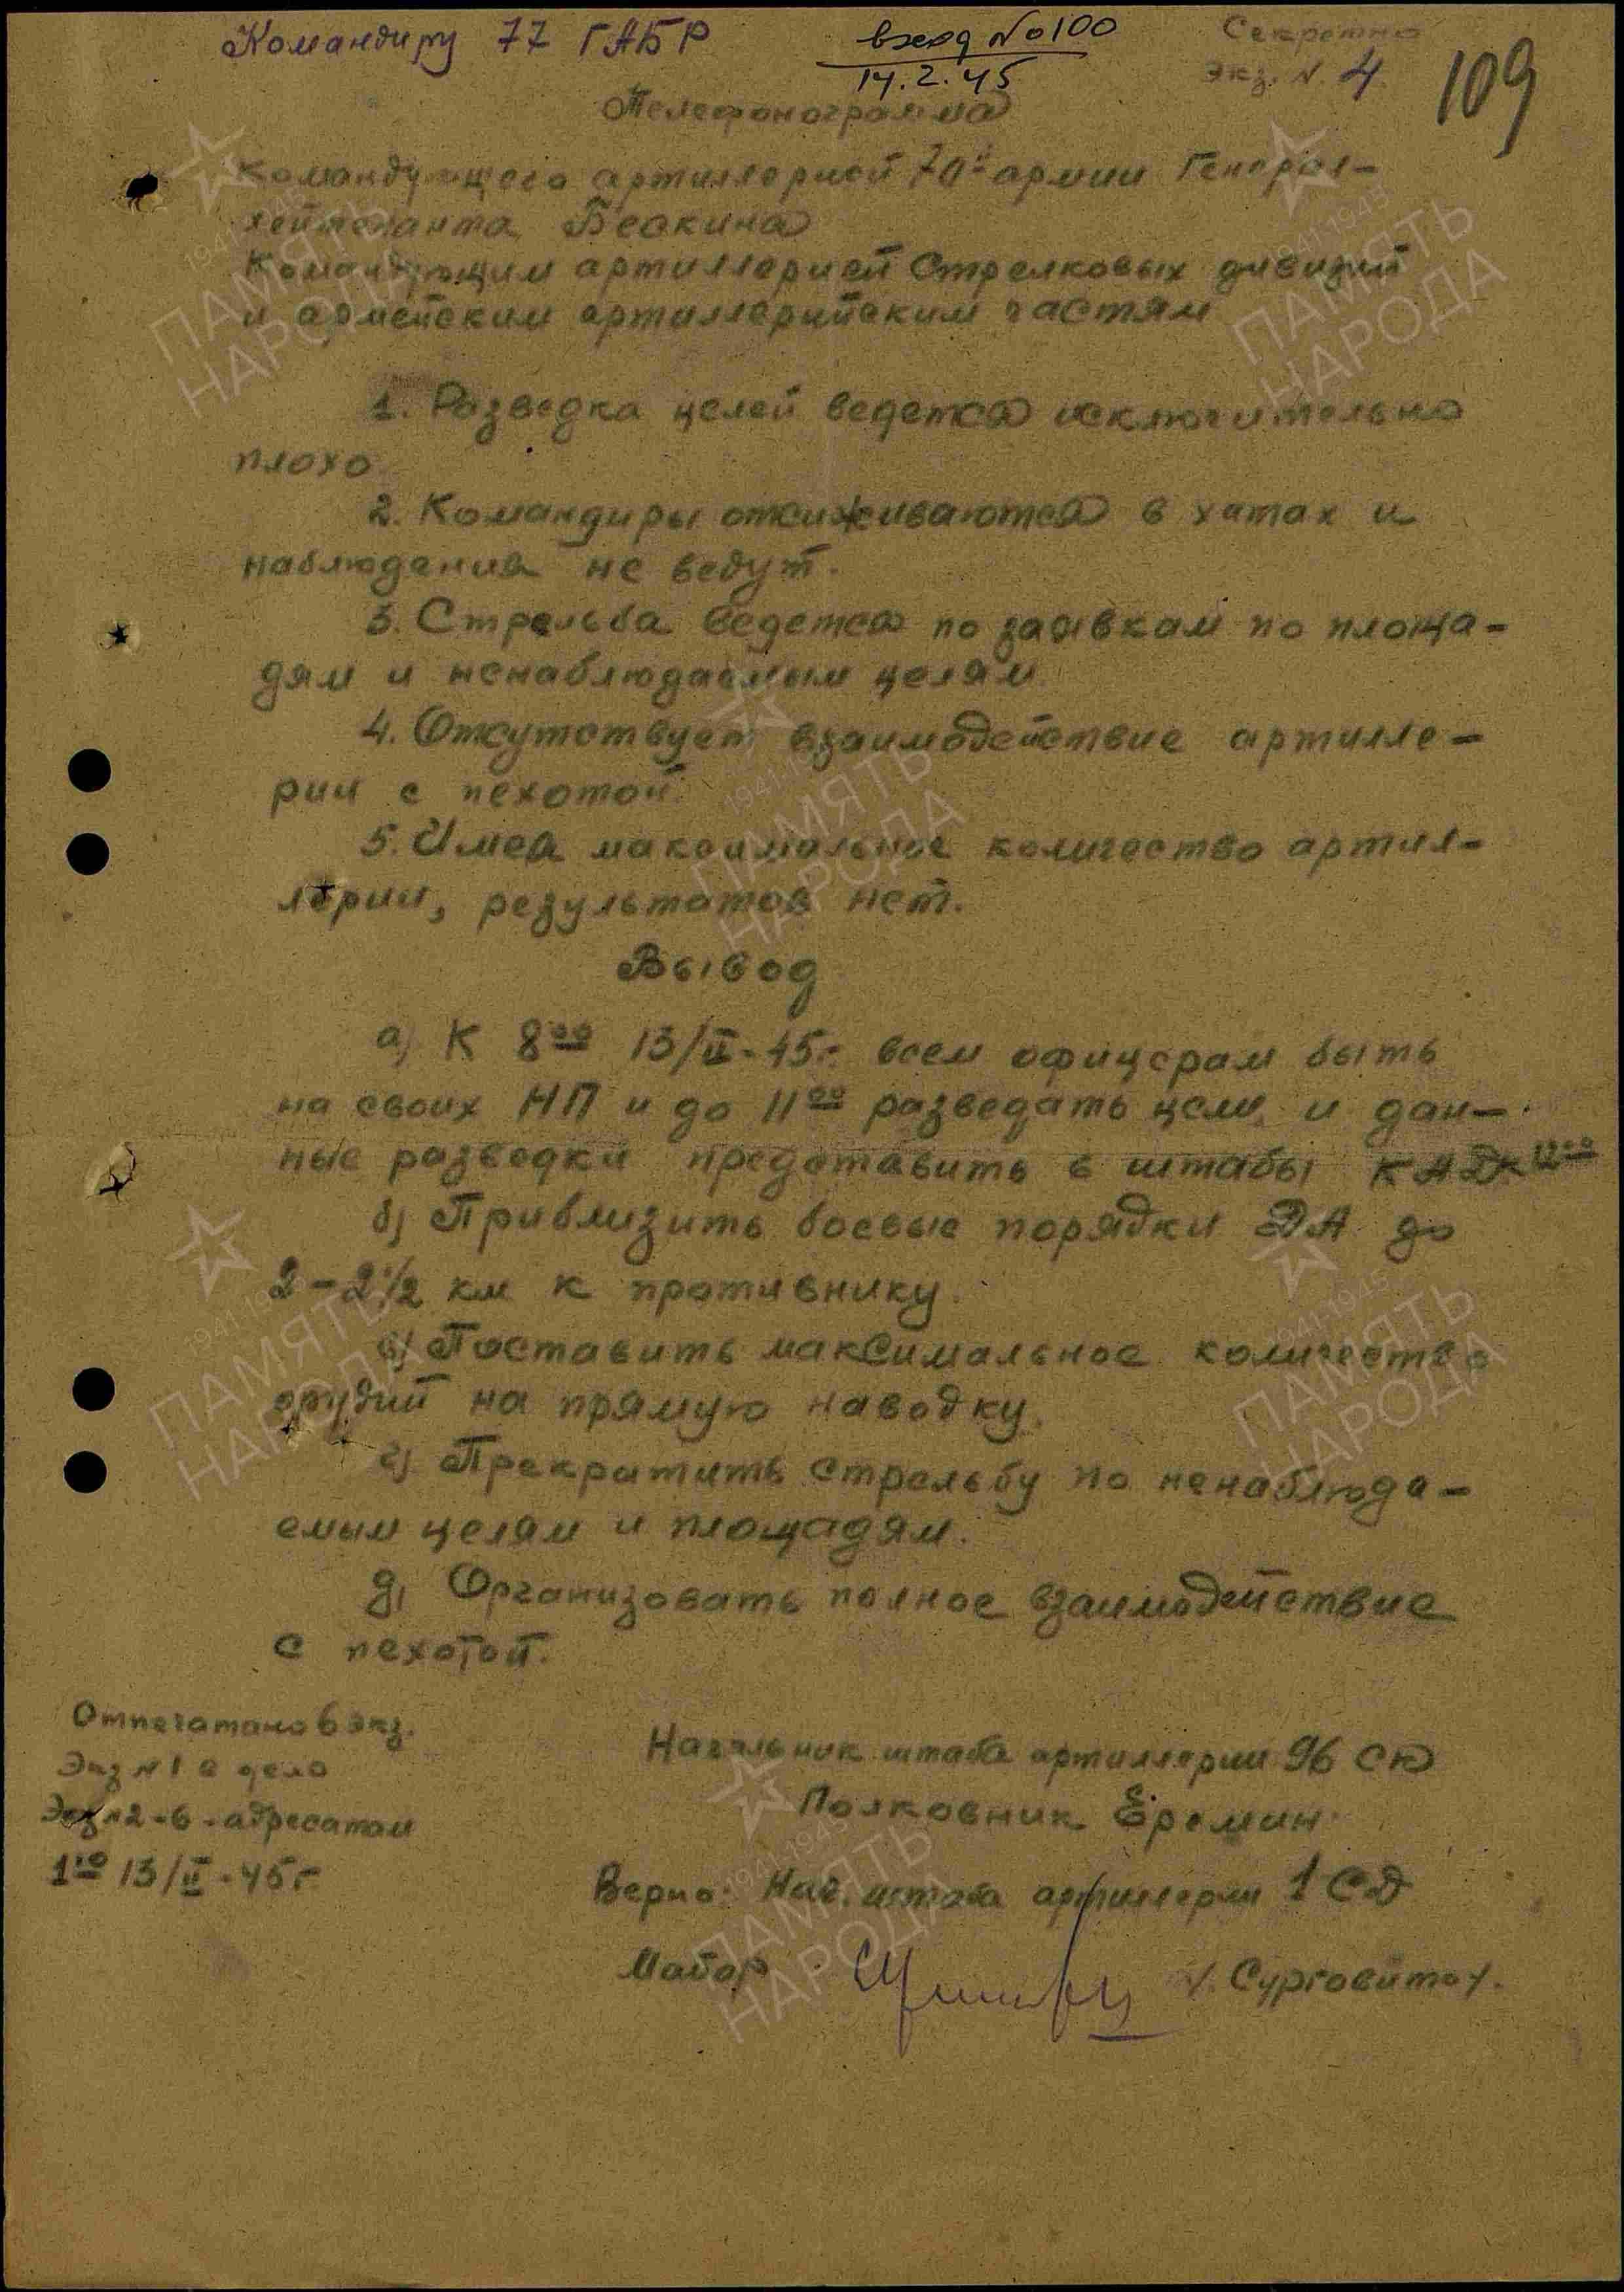 Командиру 77 ГАБР
вход №100
14.2.45
Секретно
Экз. N. 4
109
Телефонограмма
Командующего артиллерией 70й армии Генерал-
лейтенанта Бескина
Командующим артиллерией Стрелковых дивизий
и армейским артиллерийским частям
1. Разведка целей ведется исключительно
плохо.
2. Командиры отсиживаются в хатах и
наблюдения не ведут.
3. Стрельба ведется по заявкам по площа-
дям и ненаблюдаемым целям.
4. Отсутствует взаимодействие артилле-
рии с пехотой.
5. Имея максимальное количество артил-
лерии, результатов нет.
Вывод
а) К 8⁰⁰ 13/II-45г. всем офицерам быть
на своих НП и до 11⁰⁰ разведать цели, и дан-
ные разведки представить в штабы КАД к 12⁰⁰
б) Приблизить боевые порядки ДА до
2-2½ км к противнику.
в) Поставить максимальное количество
орудий на прямую наводку.
г) Прекратить стрельбу по ненаблюда-
емым целям и площадям.
д) Организовать полное взаимодействие
с пехотой.
Отпечатано 6 экз.
Экз N 1 в дело
Экз N 2-6 - адресатам
1⁰⁰ 13/II-45г.
Начальник штаба артиллерии 96 СК
Полковник Еремин.
Верно: Нач. штаба артиллерии 1 СД
Майор /. Сурговитох/.
1941-1945
ПАМЯТЬ
НАРОДА